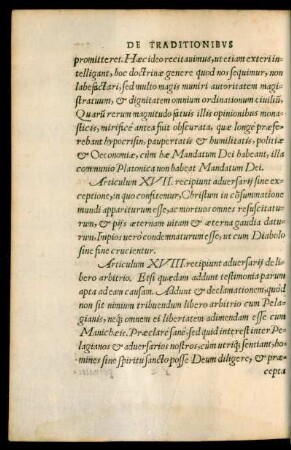 DE TRADITIONIBVS
promitteret. Hæc ideo recitauimus, ut etiam exteri in-
telligant, hoc doctrinæ genere quod nos sequimur, non
labefactari, sed multo magis muniri autoritatem magi-
stratuum, & dignitatem omnium ordinationum ciuiliũ.
Quarũ rerum magnitudo fatuis illis opinionibus mona-
sticis, mirificè antea fuit obscurata, quæ longè præfe-
rebant hypocrisin, paupertatis & humilitatis, politiæ
& Oeconomiæ, cùm hæ Mandatum Dei habeant, illa
communio Platonica non habeat Mandatum Dei.
Articulum XVII. recipiunt aduersarij sine ex-
ceptione, in quo confitemur, Christum in cõsummatione
mundi appariturum esse, ac mortuos omnes resuscitatu-
rum, & pijs æternam uitam & æterna gaudia datu-
rum, Impios uerò condemnaturum esse, ut cum Diabolo
sine fine crucientur.
Articulum XVIII. recipiunt aduersarij de li-
bero arbitrio. Etsi quædam addunt testimonia parum
apta ad eam causam. Addunt & declamationem, quòd
non sit nimium tribuendum libero arbitrio cum Pela-
gianis, neq; omnem ei libertatem adimendam esse cum
Manichæis. Præclarè sanè: sed quid interest inter Pe-
lagianos & aduersarios nostros, cùm utriq; sentiant, ho-
mines sine spiritu sancto posse Deum diligere, & præ-
cepta